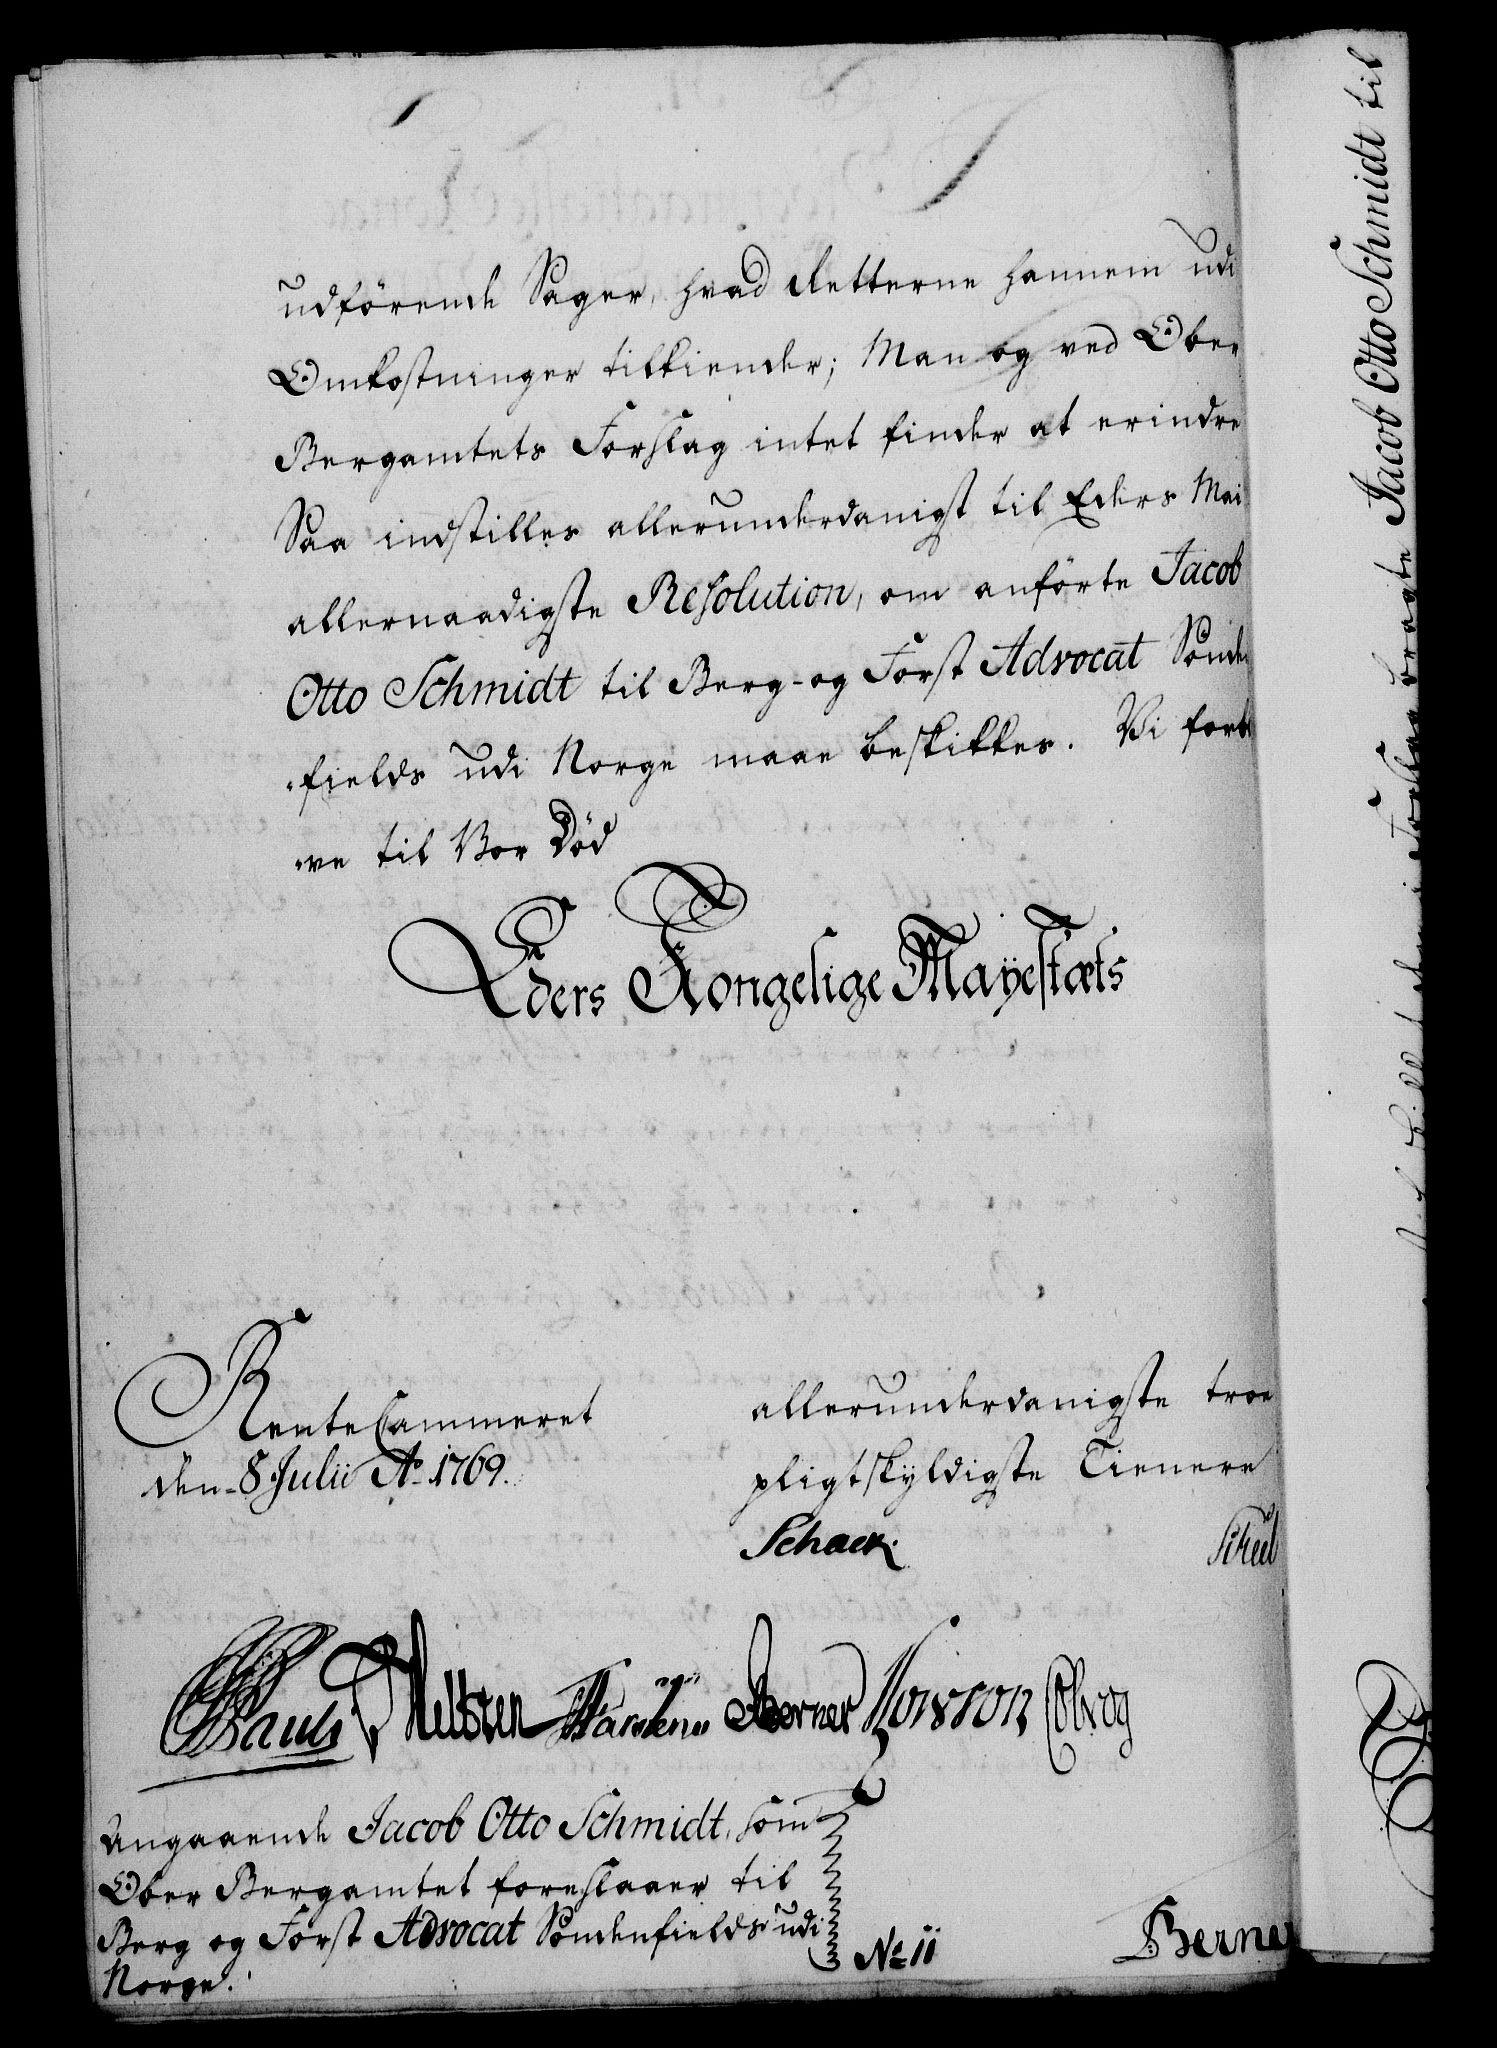 udförende Sager, hvad Retterne hannem udi
Omkostninger tilkiender; Man og ved Ober
Bergamtets Forslag intet finder at erindre
Saa indstilles allerunderdanigst til Eders Mai
allernaadigste Resolution, om anförte Jacob
Otto Schmidt til Berg- og Forst Advocat Sönden
fields udi Norge maae beskikkes. Vi forbli
ve til Vor Död
Eders Kongelige Mayestæts
RenteCammeret
den 8 Julii Ao 1769.
allerunderdanigste troe
pligtskyldigste Tienere
Schack.
Berner
Angaaende Jacob Otto Schmidt, som
Ober Bergamtet foreslaaer til
Berg og Forst Advocat Söndenfields udi
Norge.
No 11
Berner
bragte Jacob Otto Schmidt til